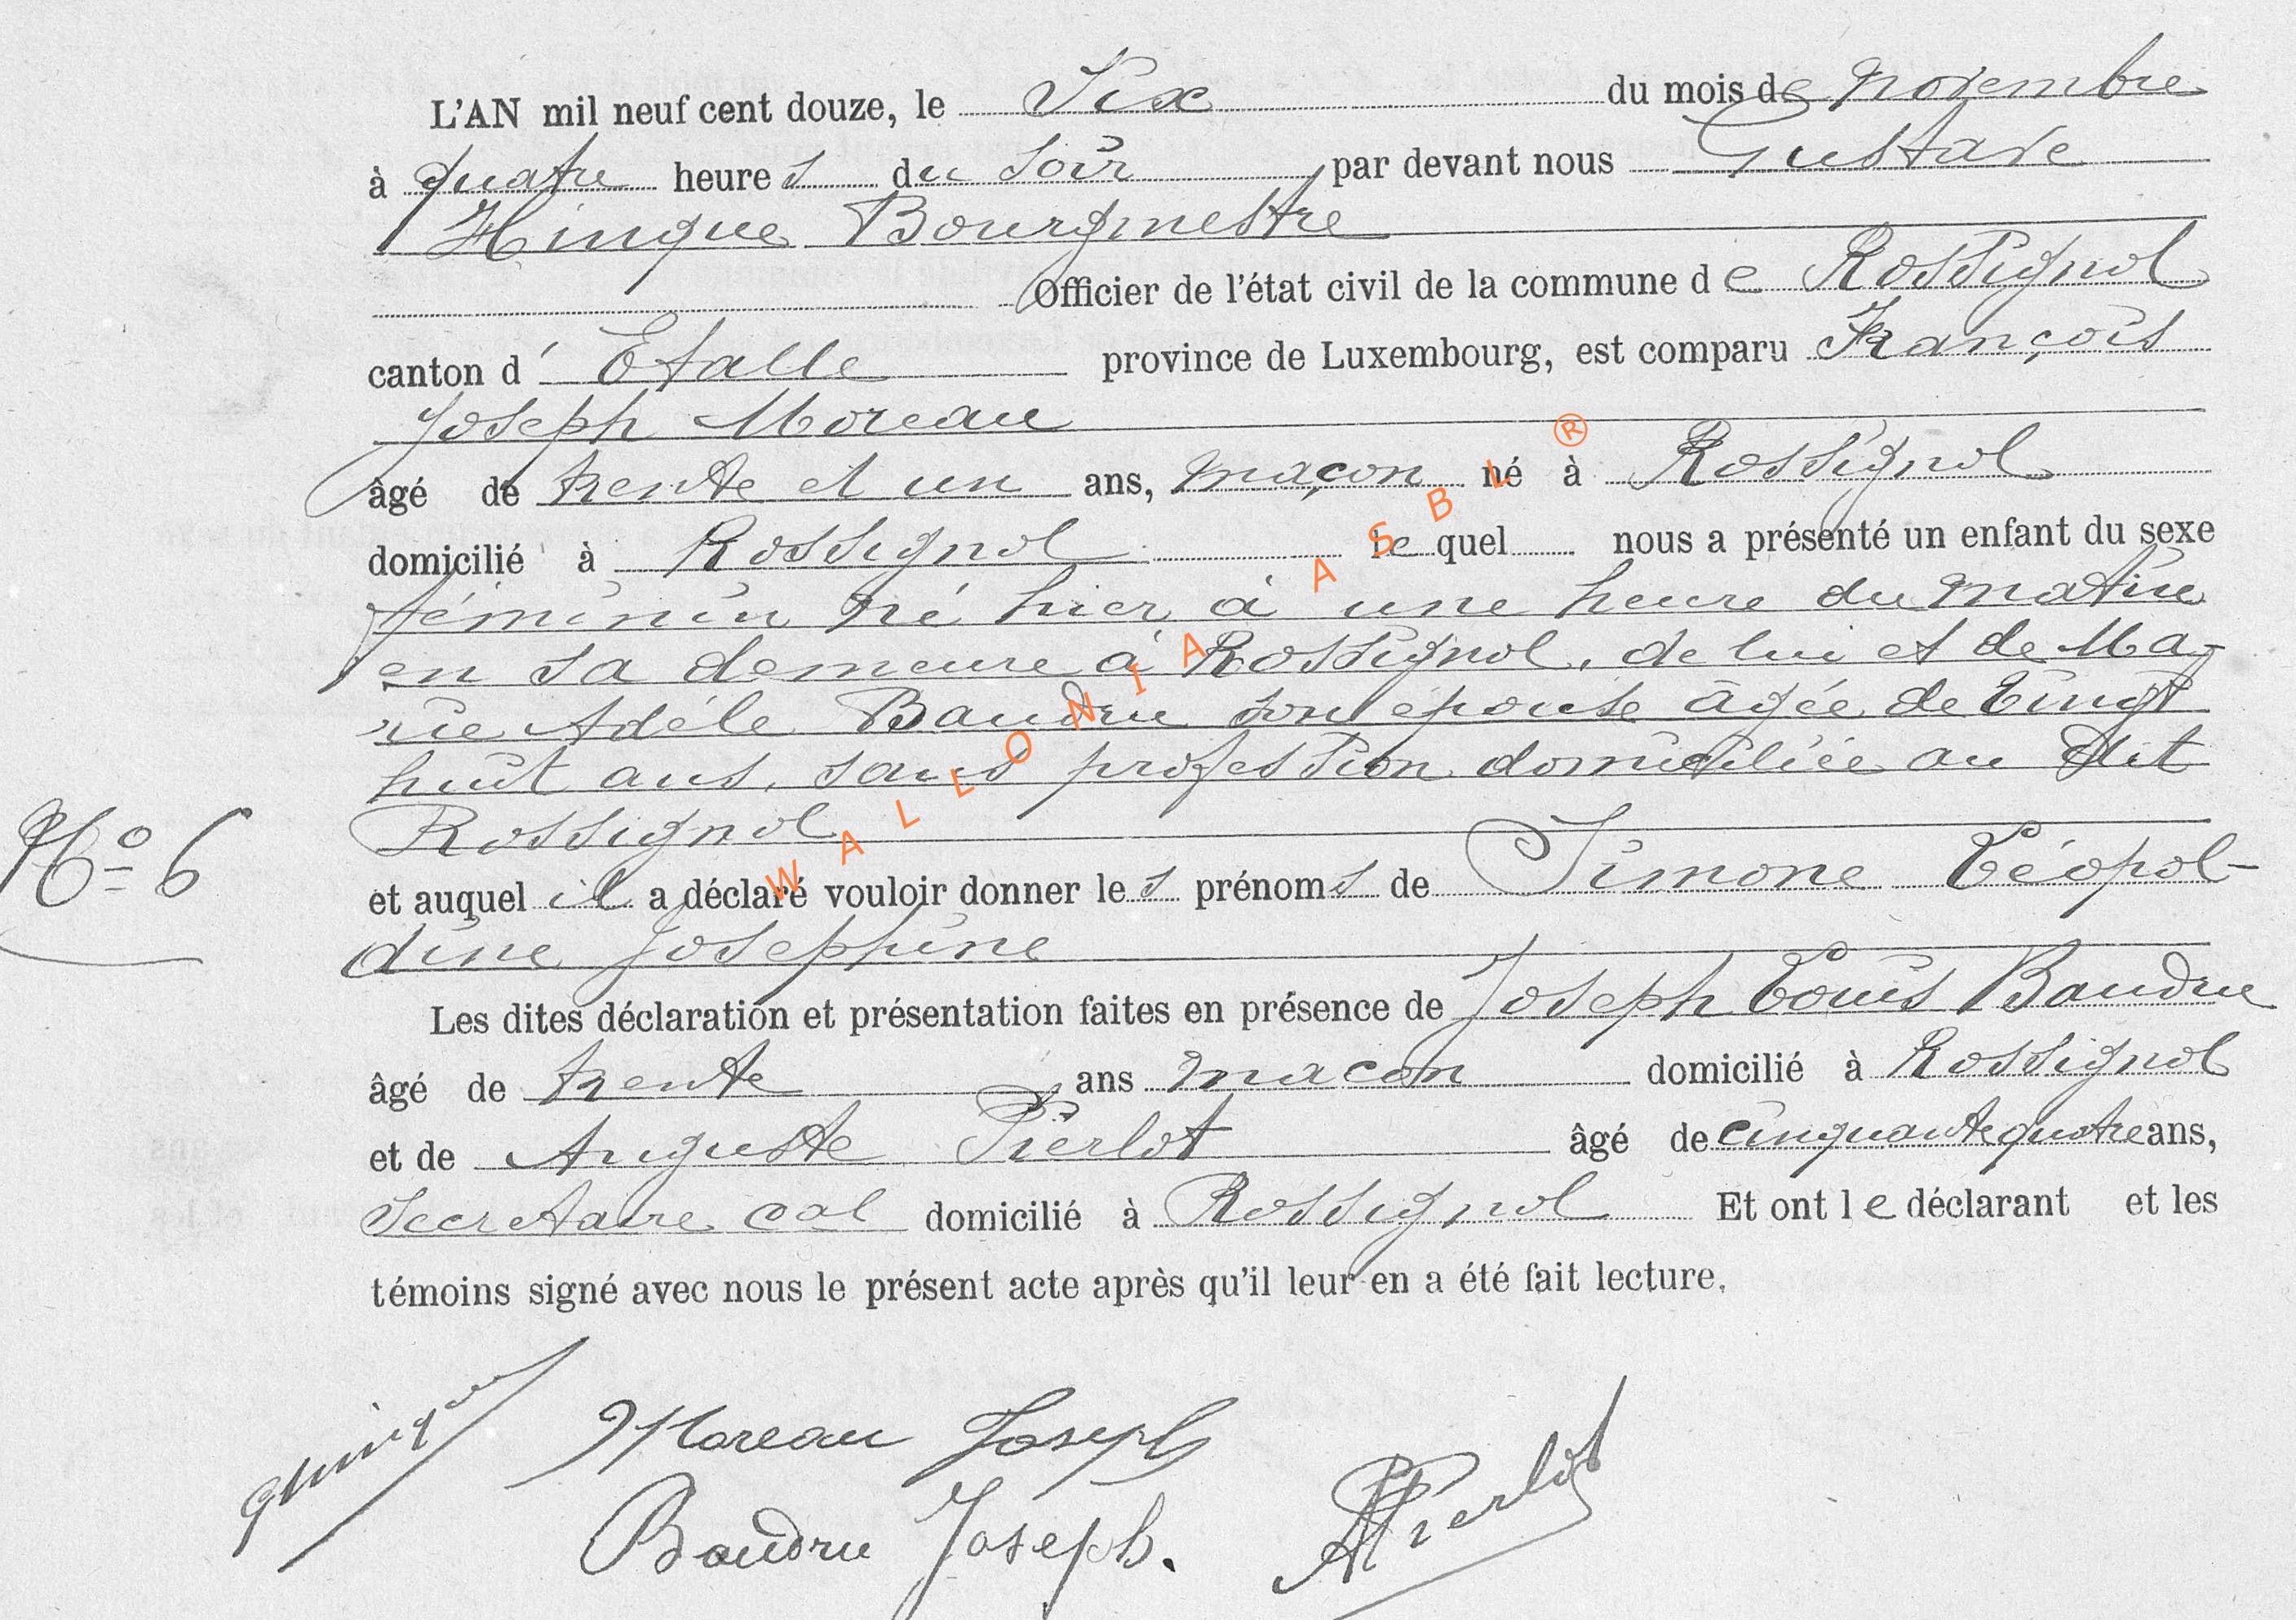 L'AN mil neuf cent douze, le Six du mois de Novembre
à quatre heures du soir par devant nous Gustave
Hinque Bourgmestre
Officier de l'état civil de la commune de Rossignol
canton d'Etalle province de Luxembourg, est comparu François
Joseph Moreau
âgé de trente et un ans, maçon né à Rossignol
domicilié à Rossignol lequel nous a présenté un enfant du sexe
féminin né hier à une heure du matin
en sa demeure à Rossignol, de lui et de Ma-
rie Adèle Baudru son épouse âgée de vingt
huit ans, sans profession domiciliée au dit
Rossignol
N° 6
et auquel il a déclaré vouloir donner les prénoms de Simone Léopol-
dine Joséphine
Les dites déclaration et présentation faites en présence de Joseph Louis Baudru
âgé de trente ans macon domicilié à Rossignol
et de Auguste Pierlot âgé de cinquante quatre ans,
Secrétaire cal domicilié à Rossignol Et ont le déclarant et les
témoins signé avec nous le présent acte après qu'il leur en a été fait lecture.
Moreau Joseph
Baudru Joseph.
APierlot
WALLONIA ASBL ®